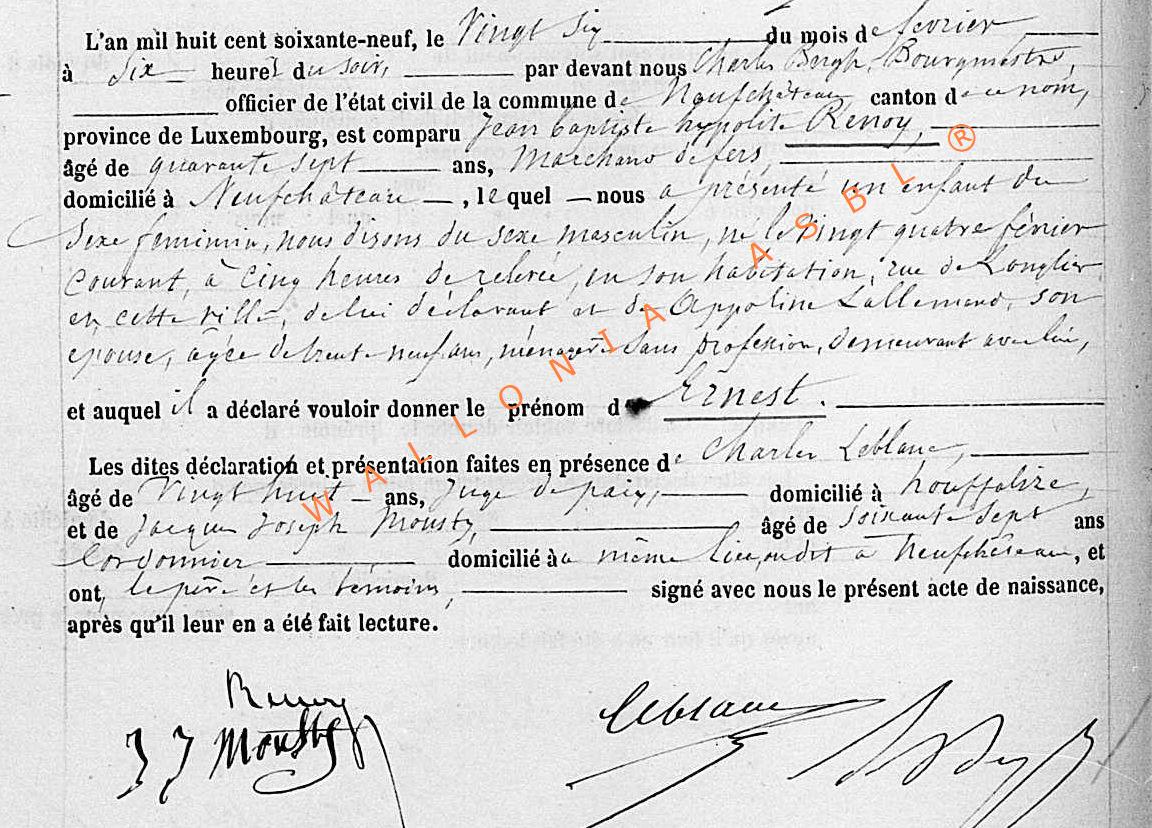 L'an mil huit cent soixante-neuf, le Vingt Six du mois de fevrier
à Six heures du soir, par devant nous Charles Bergh, Bourgmestre,
officier de l'état civil de la commune de Neufchâteau, canton de ce nom,
province de Luxembourg, est comparu Jean baptiste hypolite Renoy,
âgé de quarante sept ans, Marchand de fers,
domicilié à Neufchâteau, lequel nous a présenté un enfant du
Sexe feminin, nous disons du sexe masculin, né le Vingt quatre février
courant, à Cinq heures de relevée, en son habitation, rue de Longlier
en cette ville, de lui déclarant et de Appoline Lallemand, son
epouse, agée de trente neuf ans, ménagère sans profession, demeurant avec lui,
et auquel il a déclaré vouloir donner le prénom d Ernest.
Les dites déclaration et présentation faites en présence de Charles Leblanc,
âgé de Vingt huit ans, Juge de paix, domicilié à houffalize,
et de Jacques Joseph Mousty, âgé de soixante sept ans
Cordonnier domicilié à même lieu, à Neufchâteau, et
ont, le père et les témoins, signé avec nous le présent acte de naissance,
après qu'il leur en a été fait lecture.
Renoy
J J Mousty
Leblanc
WALLONIA ASBL ®